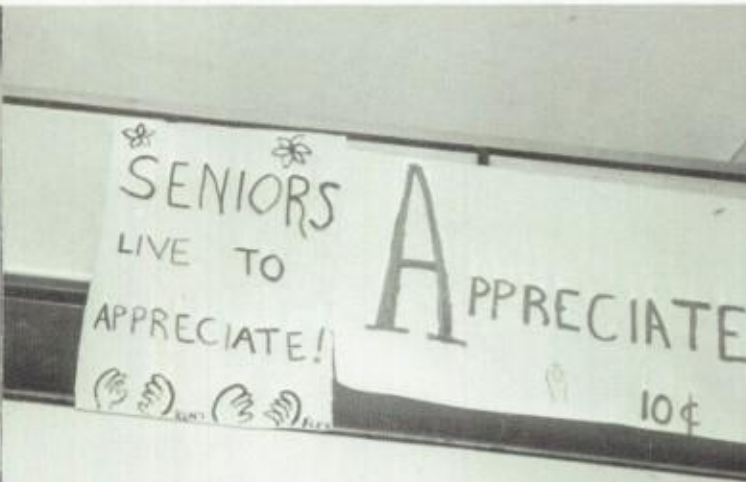 SENIORS
LIVE TO
APPRECIATE!
APPRECIATE
10¢